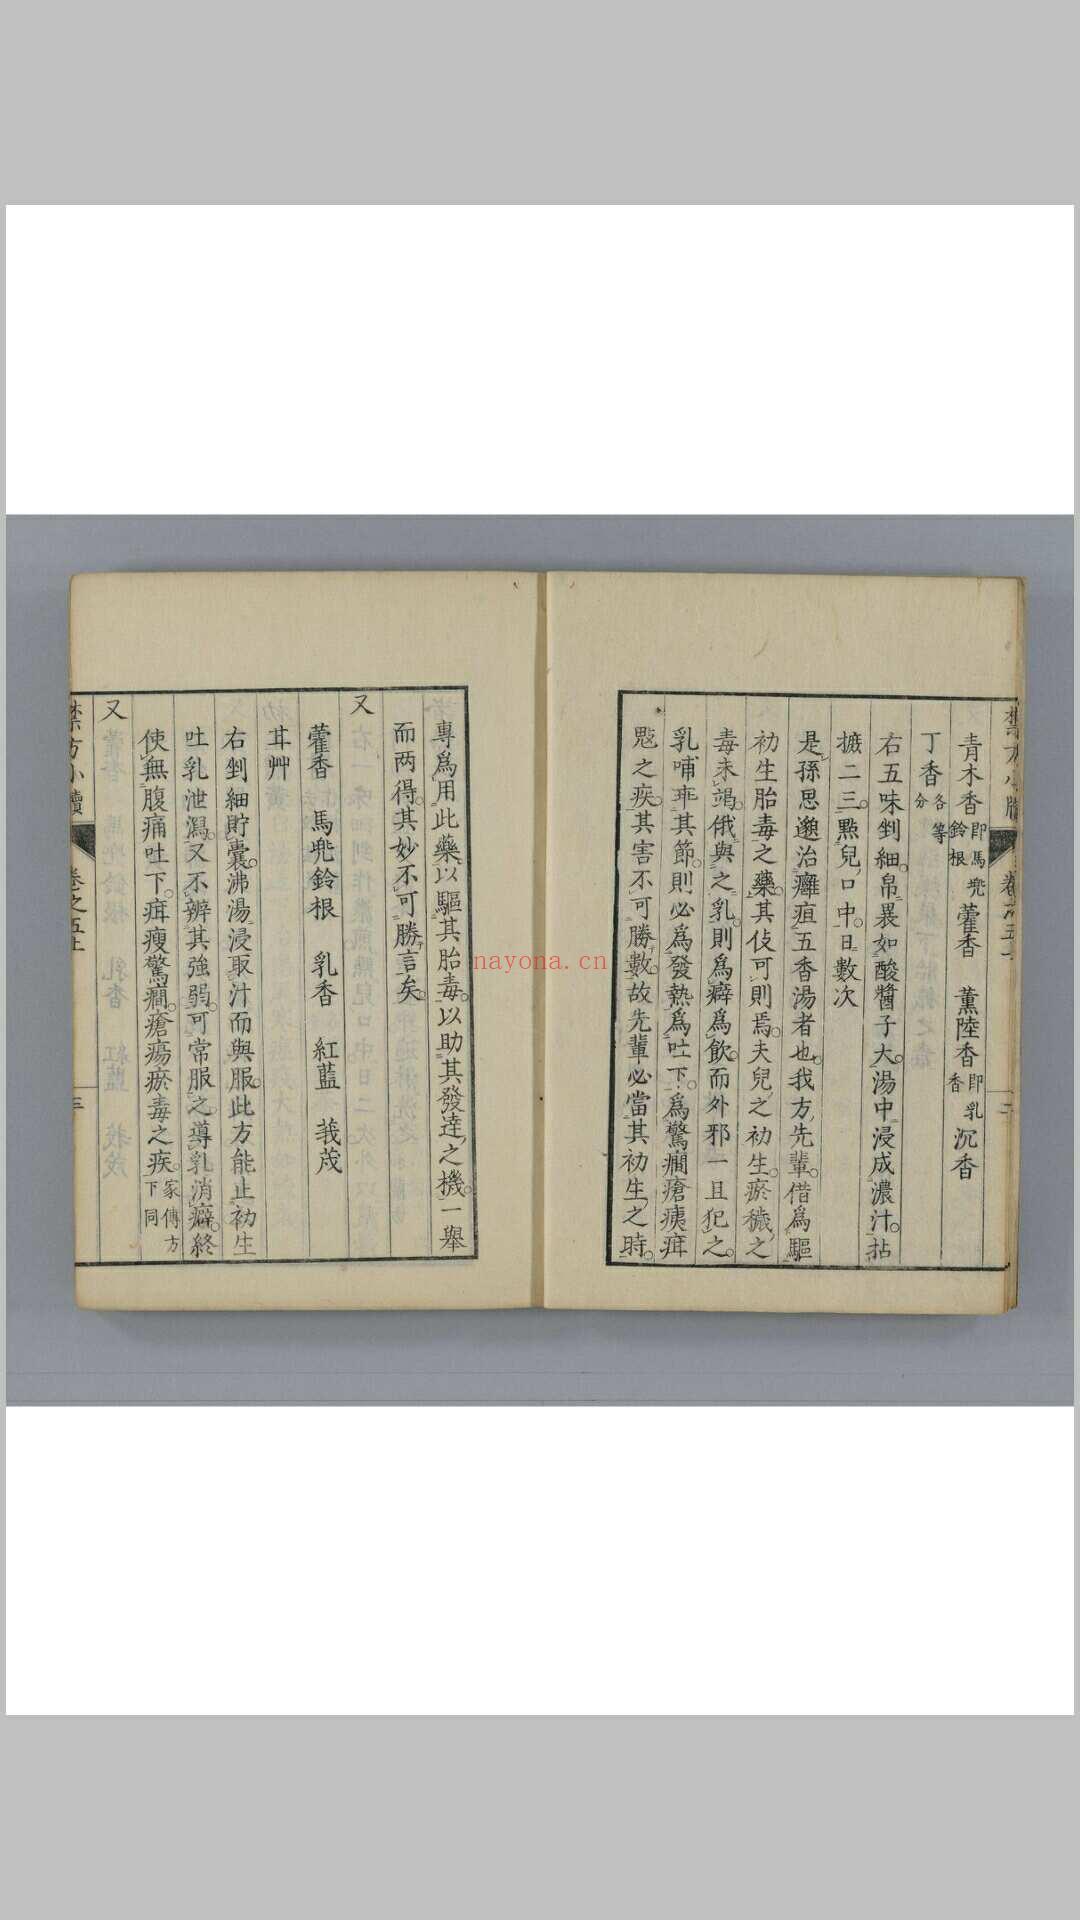 青木香即馬兜鈴根 藿香 薰陸香即乳香 沉香
丁香各等分
右五味剉細。帛裹如酸醬子大。湯中浸成濃汁。拈
摭二三點兒口中。日數次
是孫思邈治癰疽五香湯者也。我方先輩。借爲驅
初生胎毒之藥。其伎可則焉。夫兒之初生。瘀穢之
毒未竭。俄與之乳。則爲癖爲飲。而外邪一且犯之。
乳哺乖其節。則必爲發熱。爲吐下。爲驚癇瘡痍疳
鬾之疾。其害不可勝數。故先輩必當其初生之時。
專爲用此藥。以驅其胎毒。以助其發達之機。一舉
而两得。其妙不可勝言矣。
又
藿香 馬兜鈴根 乳香 紅藍 莪茂
耳艸
右剉細貯囊。沸湯浸取汁而與服。此方能止初生
吐乳泄瀉。又不辨其強弱。可常服之。導乳消癖。終
使無腹痛吐下。疳瘦驚癇。瘡瘍瘀毒之疾。家傳方下同
又
禁方小牘
卷之五上
三
nayona.cn